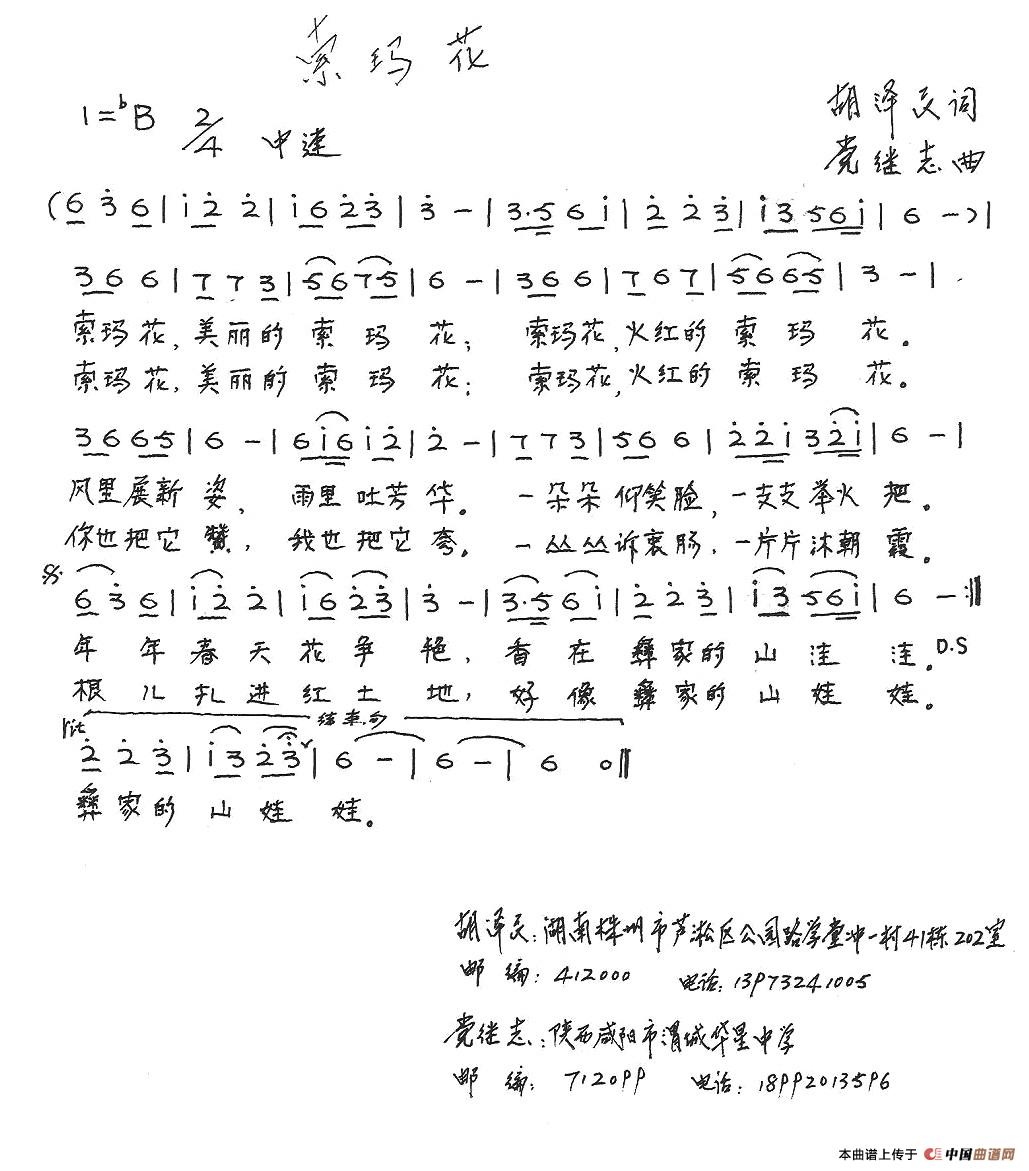 索玛花
1=♭B 2/4 中速
胡泽民词
党继志曲
(6 3̇ 6 | i 2̇ 2̇ | i 6 2̇ 3̇ | 3̇ - | 3·5 6 i | 2̇ 2̇ 3̇ | i 3 5 6 i | 6 -) |
3 6 6 | 7 7 3 | 5 6 7 5 | 6 - | 3 6 6 | 7 6 7 | 5 6 6 5 | 3 - |
索玛花,美丽的索玛花; 索玛花,火红的索玛花。
索玛花,美丽的索玛花; 索玛花,火红的索玛花。
3 6 6 5 | 6 - | 6 i 6 i 2̇ | 2̇ - | 7 7 3 | 5 6 6 | 2̇ 2̇ i 3 2̇ i | 6 - |
风里展新姿, 雨里吐芳华。 一朵朵仰笑脸,一支支举火把。
你也把它赞, 我也把它夸。 一丛丛诉衷肠,一片片沐朝霞。
𝄋 6 3̇ 6 | i 2̇ 2̇ | i 6 2̇ 3̇ | 3̇ - | 3·5 6 i | 2̇ 2̇ 3̇ | i 3 5 6 i | 6 - :‖
年年春天花争艳,香在彝家的山洼洼。D.S
根儿扎进红土地,好像彝家的山娃娃。
rit 结束句
2̇ 2̇ 3̇ | i 3 2̇ 3̇ ˅ | 6 - | 6 - | 6 0 ‖
彝家的山娃娃。
胡泽民:湖南株州市芦淞区公园路学堂冲一村41栋202室
邮编:412000 电话:13973241005
党继志:陕西咸阳市渭城华星中学
邮编:712099 电话:18992013596
本曲谱上传于 中国曲谱网